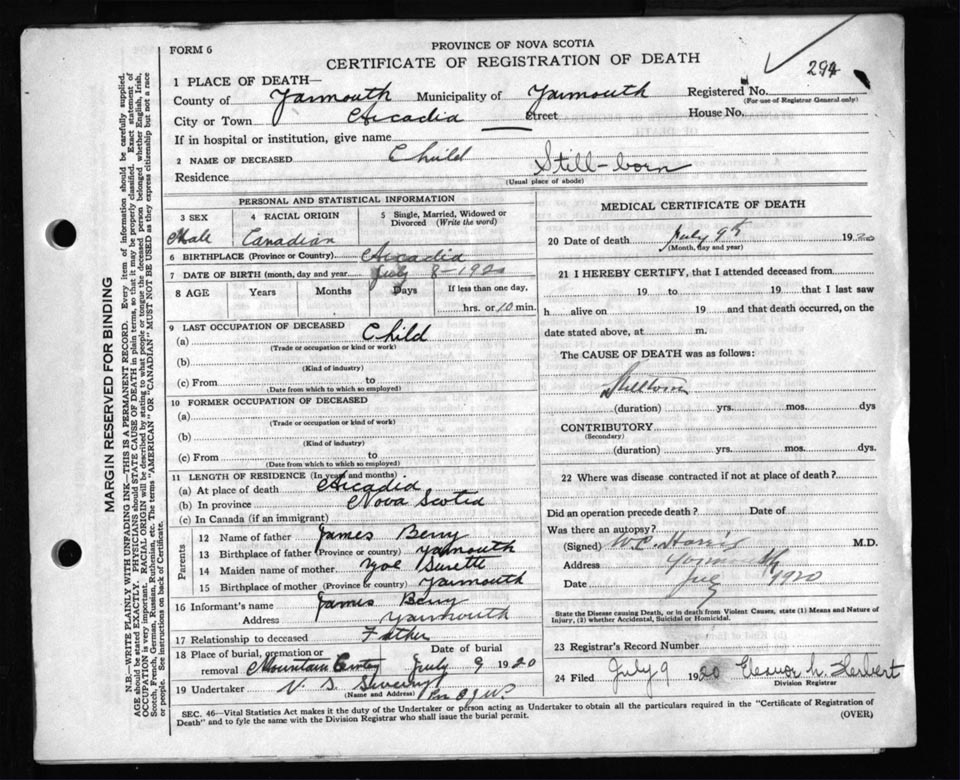 FORM 6
PROVINCE OF NOVA SCOTIA
CERTIFICATE OF REGISTRATION OF DEATH
294
1 PLACE OF DEATH—
County of Yarmouth Municipality of Yarmouth Registered No.
(For use of Registrar General only)
City or Town Arcadia Street House No.
If in hospital or institution, give name
2 NAME OF DECEASED Child Still-born
Residence
(Usual place of abode)
PERSONAL AND STATISTICAL INFORMATION
3 SEX 4 RACIAL ORIGIN 5 Single, Married, Widowed or Divorced (Write the word)
Male Canadian
6 BIRTHPLACE (Province or Country) Arcadia
7 DATE OF BIRTH (month, day and year) July 8-1920
8 AGE Years Months Days If less than one day,
hrs. or 10 min.
9 LAST OCCUPATION OF DECEASED
(a) Child
(Trade or occupation or kind or work)
(b)
(Kind of industry)
(c) From to
(Date from which to which so employed)
10 FORMER OCCUPATION OF DECEASED
(a)
(Trade or occupation or kind of work)
(b)
(Kind of industry)
(c) From to
(Date from which to which so employed)
11 LENGTH OF RESIDENCE (In years and months)
(a) At place of death Arcadia
(b) In province Nova Scotia
(c) In Canada (if an immigrant)
Parents
12 Name of father James Berry
13 Birthplace of father (Province or country) Yarmouth
14 Maiden name of mother Zoe Surette
15 Birthplace of mother (Province or country) Yarmouth
16 Informant's name James Berry
Address Yarmouth
17 Relationship to deceased Father
18 Place of burial, cremation or removal Mountain Cemtey Date of burial July 9 1920
19 Undertaker V. S. Sweeny
(Name and Address)
MEDICAL CERTIFICATE OF DEATH
20 Date of death July 9th 1920
(Month, day and year)
21 I HEREBY CERTIFY, that I attended deceased from
19 to 19 that I last saw
h alive on 19 and that death occurred, on the
date stated above, at m.
The CAUSE OF DEATH was as follows:
Stillborn
(duration) yrs. mos. dys
CONTRIBUTORY
(Secondary)
(duration) yrs. mos. dys
22 Where was disease contracted if not at place of death?
Did an operation precede death? Date of
Was there an autopsy?
(Signed) W.C. Harris M.D.
Address Yarmouth
Date July 1920
State the Disease causing Death, or in death from Violent Causes, state (1) Means and Nature of
Injury, (2) whether Accidental, Suicidal or Homicidal.
23 Registrar's Record Number
24 Filed July 9 1920 Eleanor N. Herbert
Division Registrar
SEC. 46—Vital Statistics Act makes it the duty of the Undertaker or person acting as Undertaker to obtain all the particulars required in the "Certificate of Registration of
Death" and to fyle the same with the Division Registrar who shall issue the burial permit.
(OVER)
MARGIN RESERVED FOR BINDING
N.B.—WRITE PLAINLY WITH UNFADING INK—THIS IS A PERMANENT RECORD. Every item of information should be carefully supplied.
AGE should be stated EXACTLY. PHYSICIANS should STATE CAUSE OF DEATH in plain terms, so that it may be properly classified. Exact statement of
OCCUPATION is very important. RACIAL ORIGIN will be described by stating to what people or tongue the deceased person belonged whether English, Irish,
Scotch, French, German, Russian, Ruthenian, etc. The terms "AMERICAN" OR "CANADIAN" MUST NOT BE USED as they express citizenship but not a race
or people. See instructions on back of Certificate.